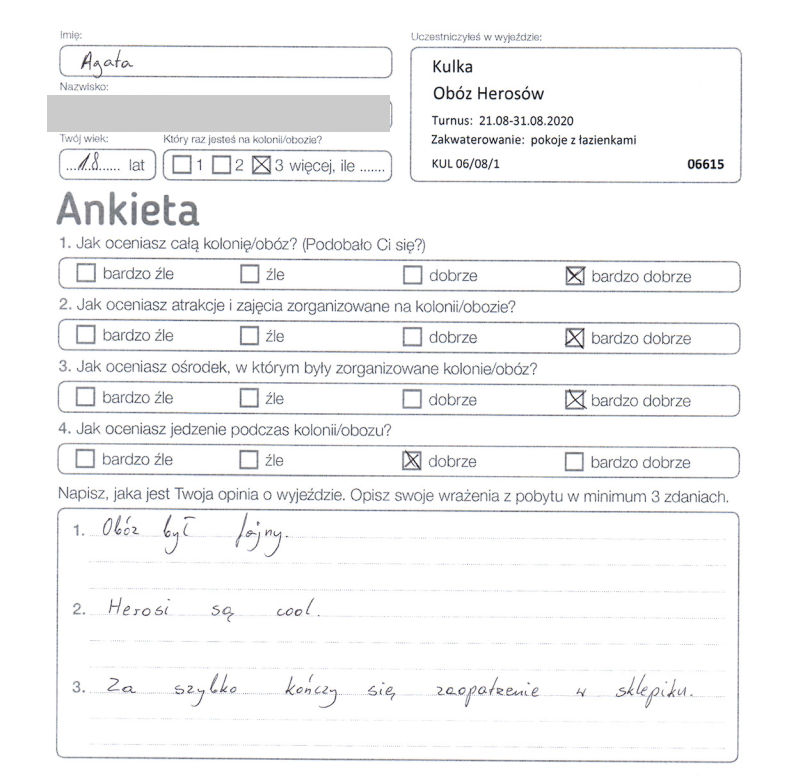 Imię:
Agata
Nazwisko:
Twój wiek:
Który raz jesteś na kolonii/obozie?
...18...... lat
1 2 3 więcej, ile .......
Uczestniczyłeś w wyjeździe:
Kulka
Obóz Herosów
Turnus: 21.08-31.08.2020
Zakwaterowanie: pokoje z łazienkami
KUL 06/08/1 06615
Ankieta
1. Jak oceniasz całą kolonię/obóz? (Podobało Ci się?)
bardzo źle źle dobrze bardzo dobrze
2. Jak oceniasz atrakcje i zajęcia zorganizowane na kolonii/obozie?
bardzo źle źle dobrze bardzo dobrze
3. Jak oceniasz ośrodek, w którym były zorganizowane kolonie/obóz?
bardzo źle źle dobrze bardzo dobrze
4. Jak oceniasz jedzenie podczas kolonii/obozu?
bardzo źle źle dobrze bardzo dobrze
Napisz, jaka jest Twoja opinia o wyjeździe. Opisz swoje wrażenia z pobytu w minimum 3 zdaniach.
1. Obóz był fajny.
2. Herosi są cool.
3. Za szybko kończy się zaopatrzenie w sklepiku.